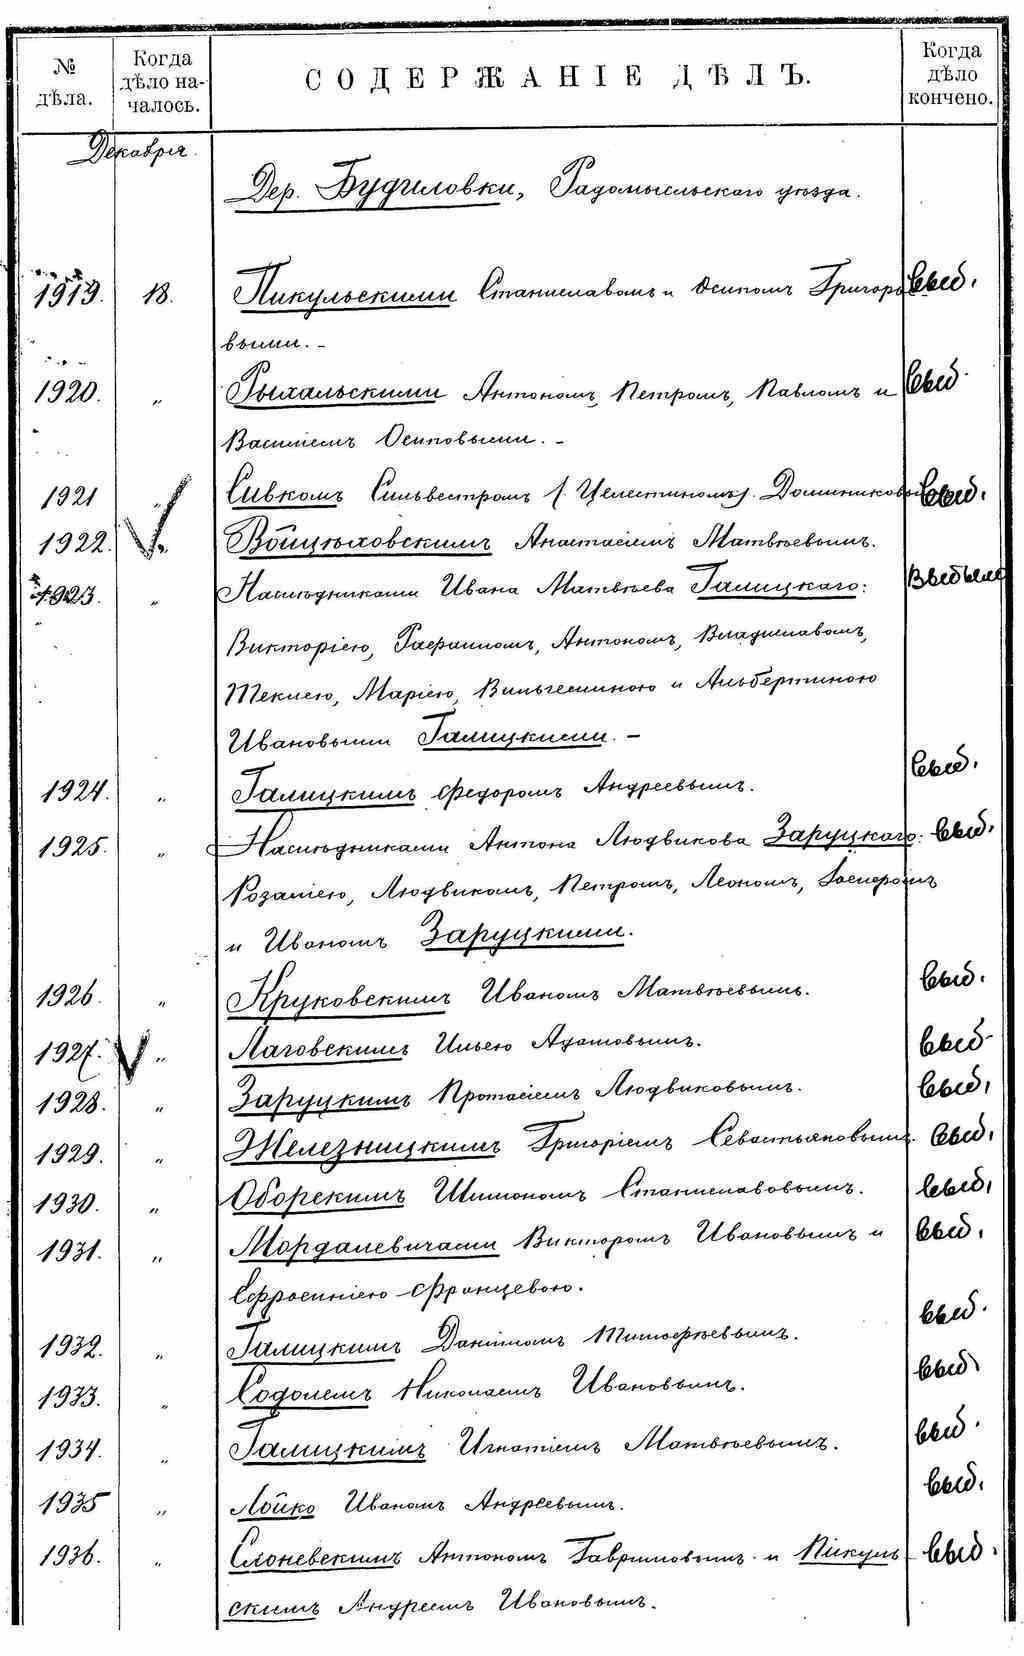 № дѣла.
Когда дѣло началось.
СОДЕРЖАНІЕ ДѢЛЪ.
Когда дѣло кончено.
Декабря.
Дер. Будиловки, Радомысльскаго уѣзда.
1919. 18. Пикульскими Станиславомъ и Осипомъ Григорье- выб.
выми. –
1920. „ Рыхальскими Антономъ, Петромъ, Павломъ и выб.
Василіемъ Осиповыми. –
1921 „ Сивкомъ Сильвестромъ (Целестиномъ) выб.
1922. „ Войцѣховскимъ Анастасіемъ Матвѣевымъ.
1923. „ Наслѣдниками Ивана Матвѣева Галицкаго:
Викторіею, Рафаиломъ, Антономъ, Владиславомъ,
Теклею, Маріею, Вильгельминою и Альбертиною
Ивановыми Галицкими. –
1924. „ Галицкимъ Федоромъ Андреевымъ. выб.
1925. „ Наслѣдниками Антона Людвикова Заруцкаго: выб.
Розаліею, Людвикомъ, Петромъ, Леономъ,
и Иваномъ Заруцкими.
1926. „ Круковскимъ Иваномъ Матвѣевымъ. выб.
1927. „ Лаговскимъ Ильею Адамовымъ. выб.
1928. „ Заруцкимъ Протасіемъ Людвиковымъ. выб.
1929. „ Железницкимъ Григоріемъ Севастьяновымъ. выб.
1930. „ Оборскимъ Шимономъ Станиславовымъ. выб.
1931. „ Мордалевичами Викторомъ Ивановымъ и выб.
Ефросиніею Францевою.
1932. „ Галицкимъ Даніиломъ Тимофѣевымъ. выб.
1933. „ Содолемъ Николаемъ Ивановымъ. выб
1934. „ Галицкимъ Игнатіемъ Матвѣевымъ. выб.
1935 „ Лойко Иваномъ Андреевымъ. выб.
1936. „ Слоневскимъ Антономъ Гавриловымъ и Пикуль- выб.
скимъ Андреемъ Ивановымъ.